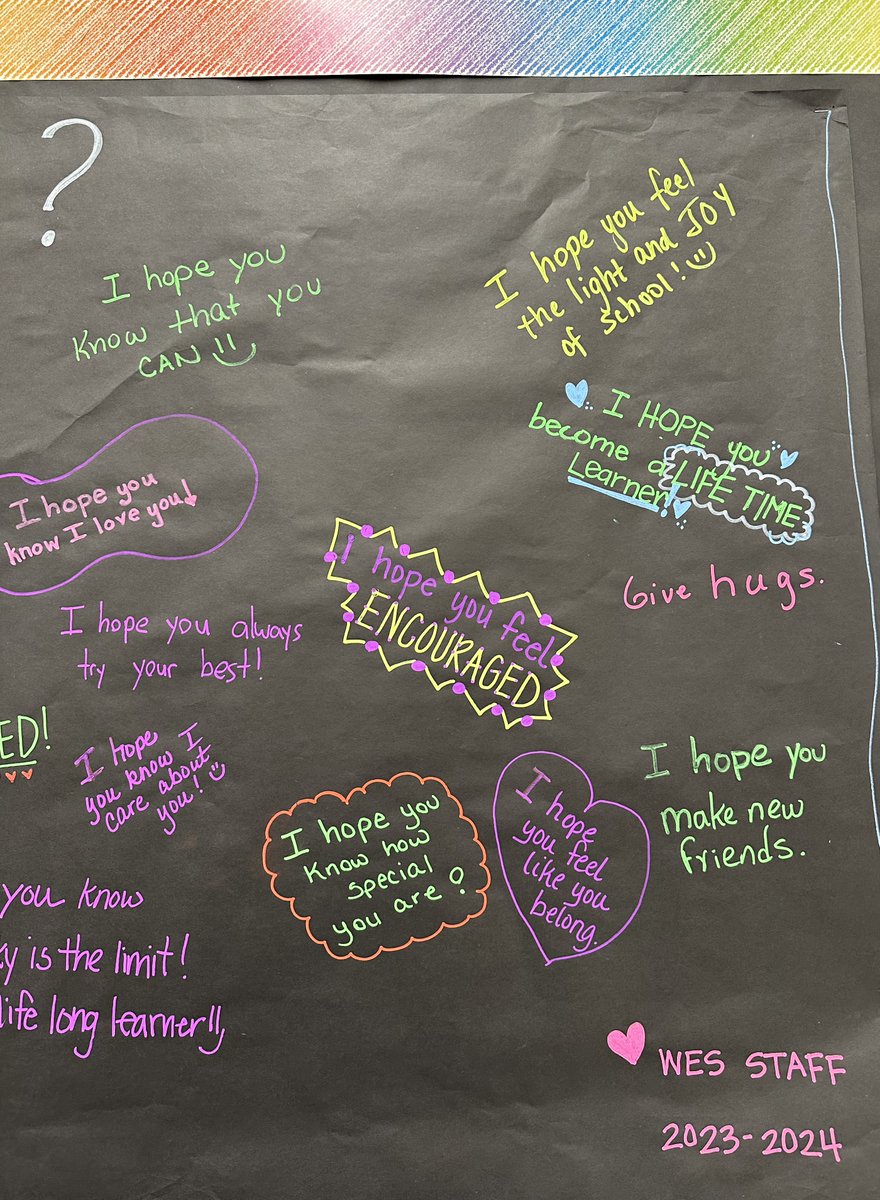 ?
I hope you
know that you
CAN
I hope you feel
the light and JOY
of school!
I HOPE you
become a LIFE TIME
Learner!
I hope you
know I love you!
Give hugs.
I hope you feel
ENCOURAGED
I hope you always
try your best!
ED!
I hope
you know I
care about
you!
I hope you
know how
special
you are?
I hope
you feel
like you
belong.
I hope you
make new
friends.
you know
y is the limit!
life long learner!!
WES STAFF
2023-2024